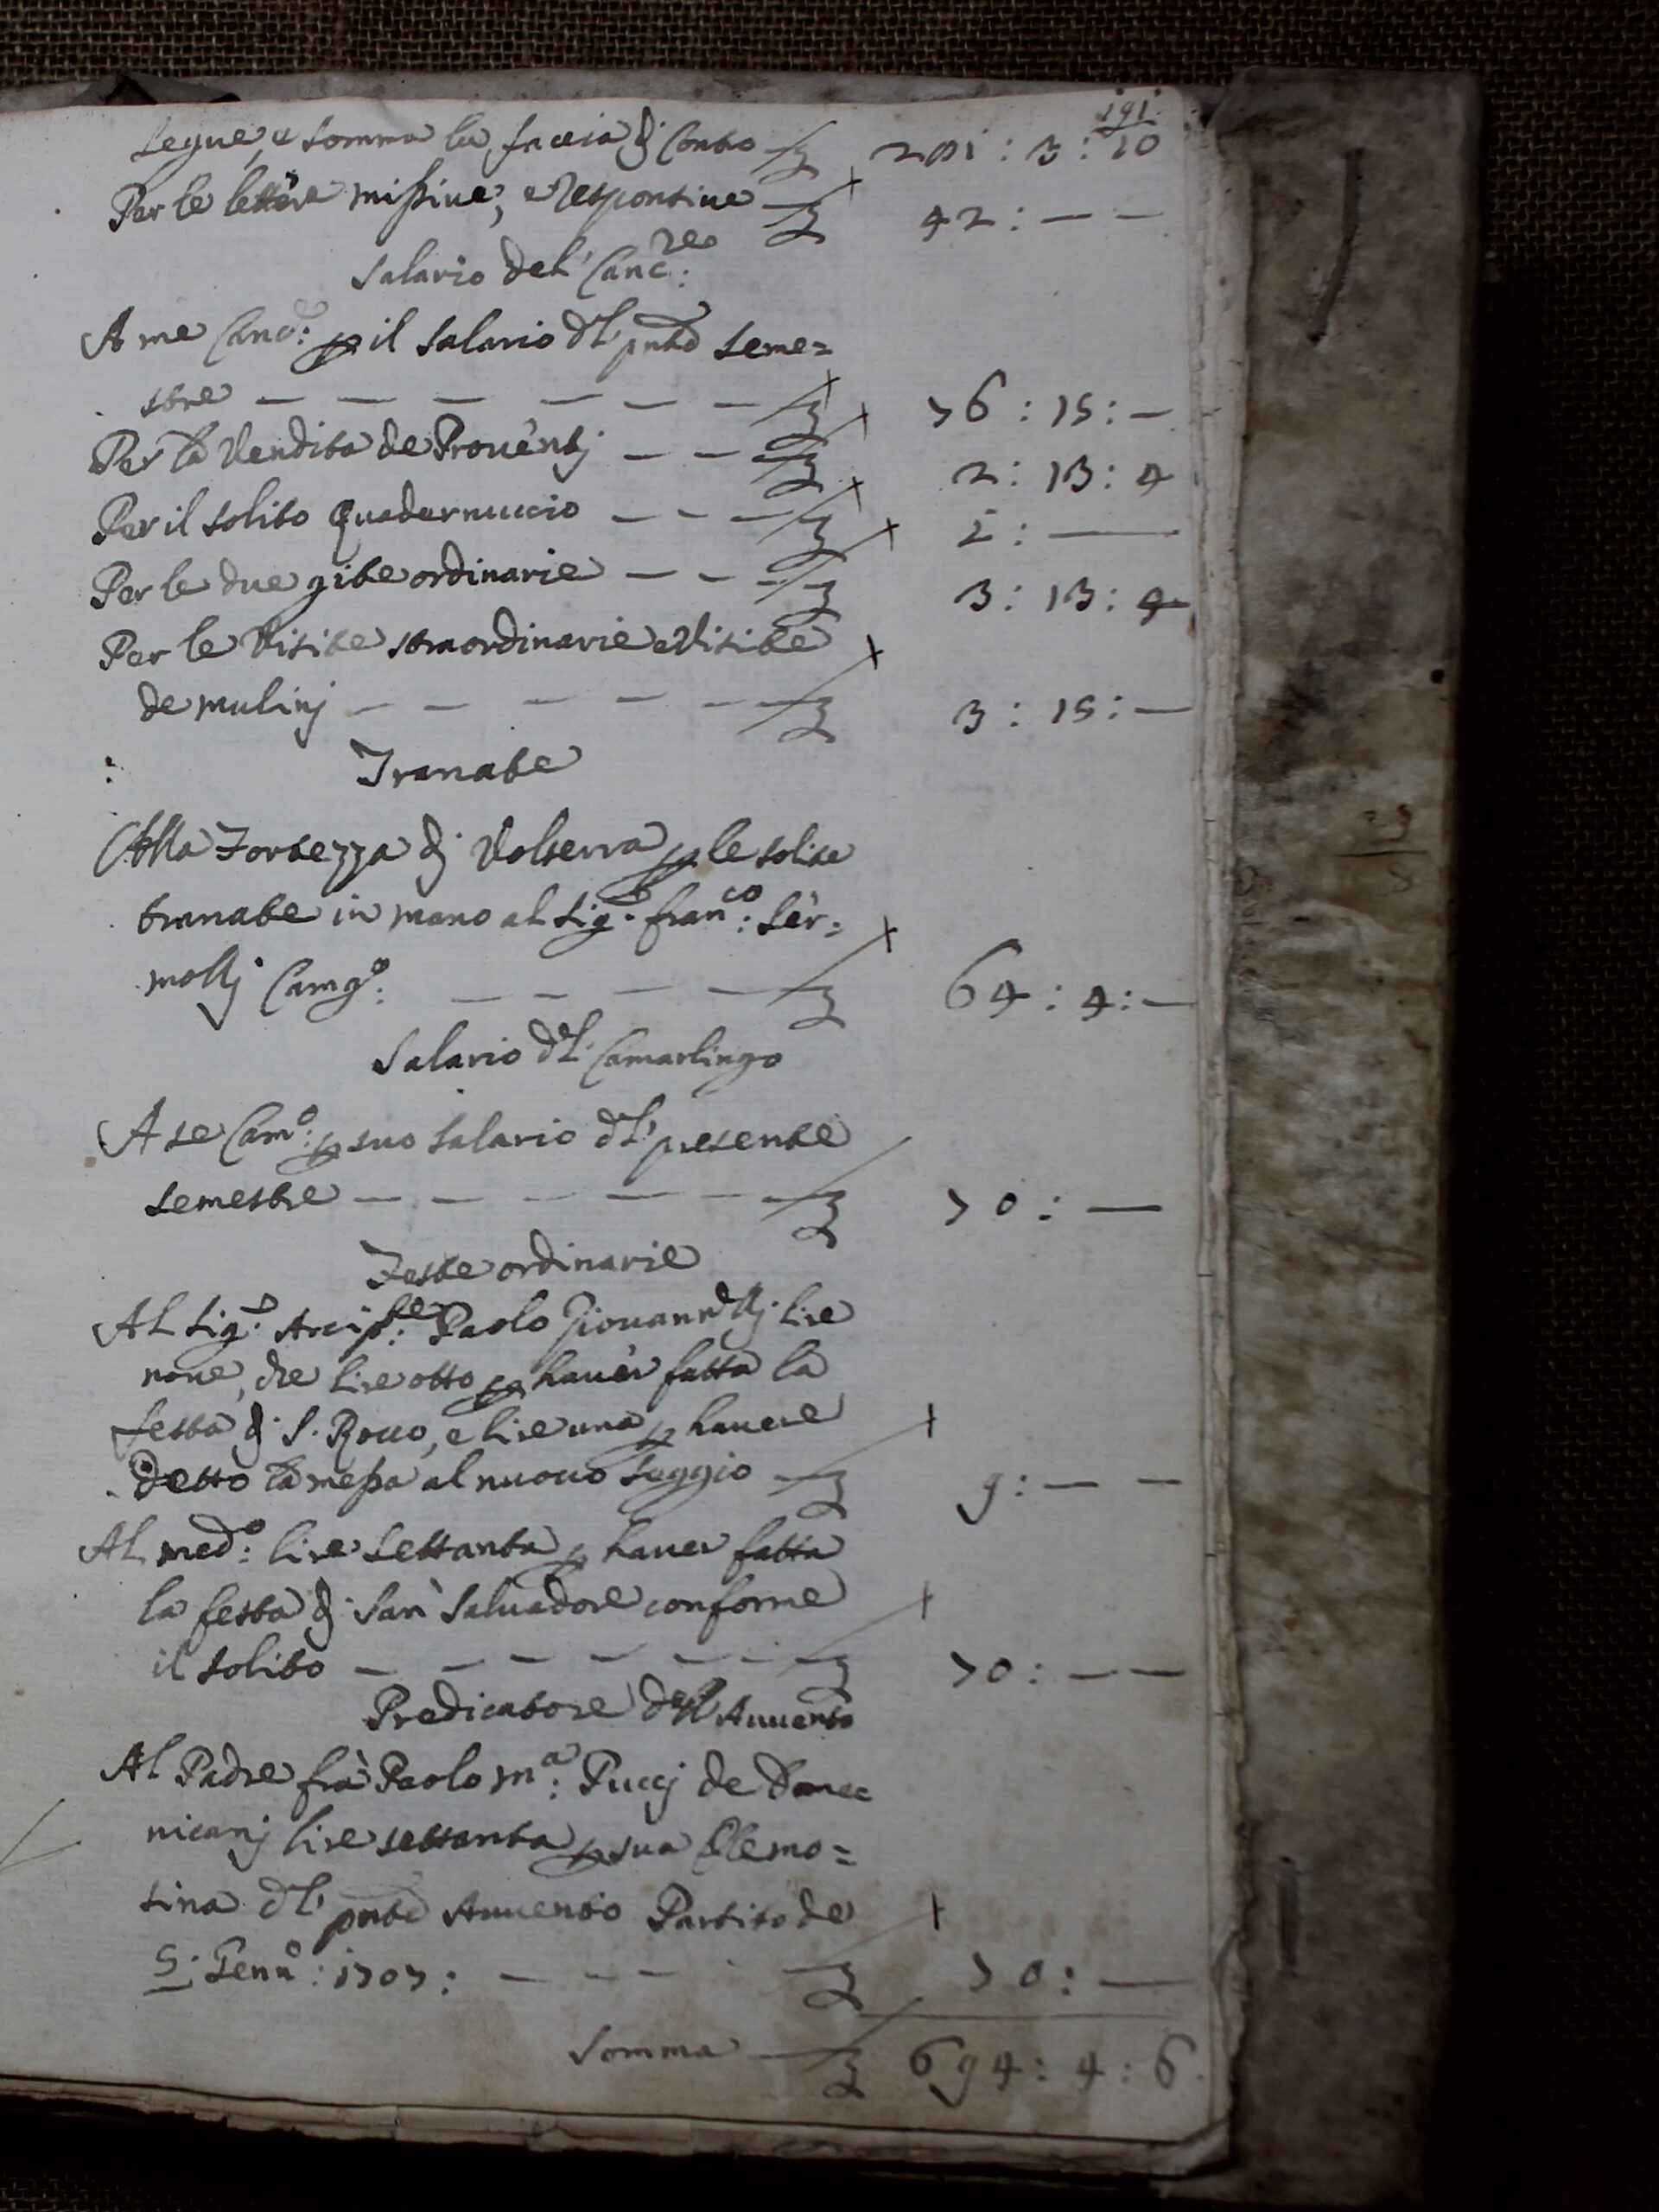 191.
Segue, e somma la faccia di Conto 281 : 3 : 10
Per le lettere missive, e responsive 42 : — —
Salario del Canc.re
A me Canc.e: p il salario dl' pnte seme=
stre — — — — — — 76 : 15 : —
Per la Vendita de Proventj — — — 2 : 13 : 4
Per il solito Quadernuccio — — — 1 : —
Per le due gite ordinarie — — — 3 : 13 : 4
Per le Visite straordinarie e Visite
de mulinj — — — — — 3 : 15 : —
Tranate
Alla Fortezza di Volterra p le solite
tranate in mano al Sig.r Fran.co: Ser=
mollj Camg.o: — — — — 64 : 4 : —
Salario dl' Camarlingo
A se Cam.o: p suo salario dl' presente
semestre — — — — — 70 : —
Feste ordinarie
Al Sig.r Arcip.te: Paolo Giovannellj lire
nove, che lire otto p haver fatta la
festa di S. Rocco, e lire una p havere
detto la messa al nuovo seggio — 9 : — —
Al med.o: lire settanta p haver fatta
la festa di San Salvadore conforme
il solito — — — — — — 70 : — —
Predicatore dell' Avvento
Al Padre frà Paolo M.a: Puccj de
nicanj lire settanta p sua Elemo=
sina dl' pnte Avvento Partito de
5: Genn.o: 1707: — — — — 70 : —
Somma 694 : 4 : 6.